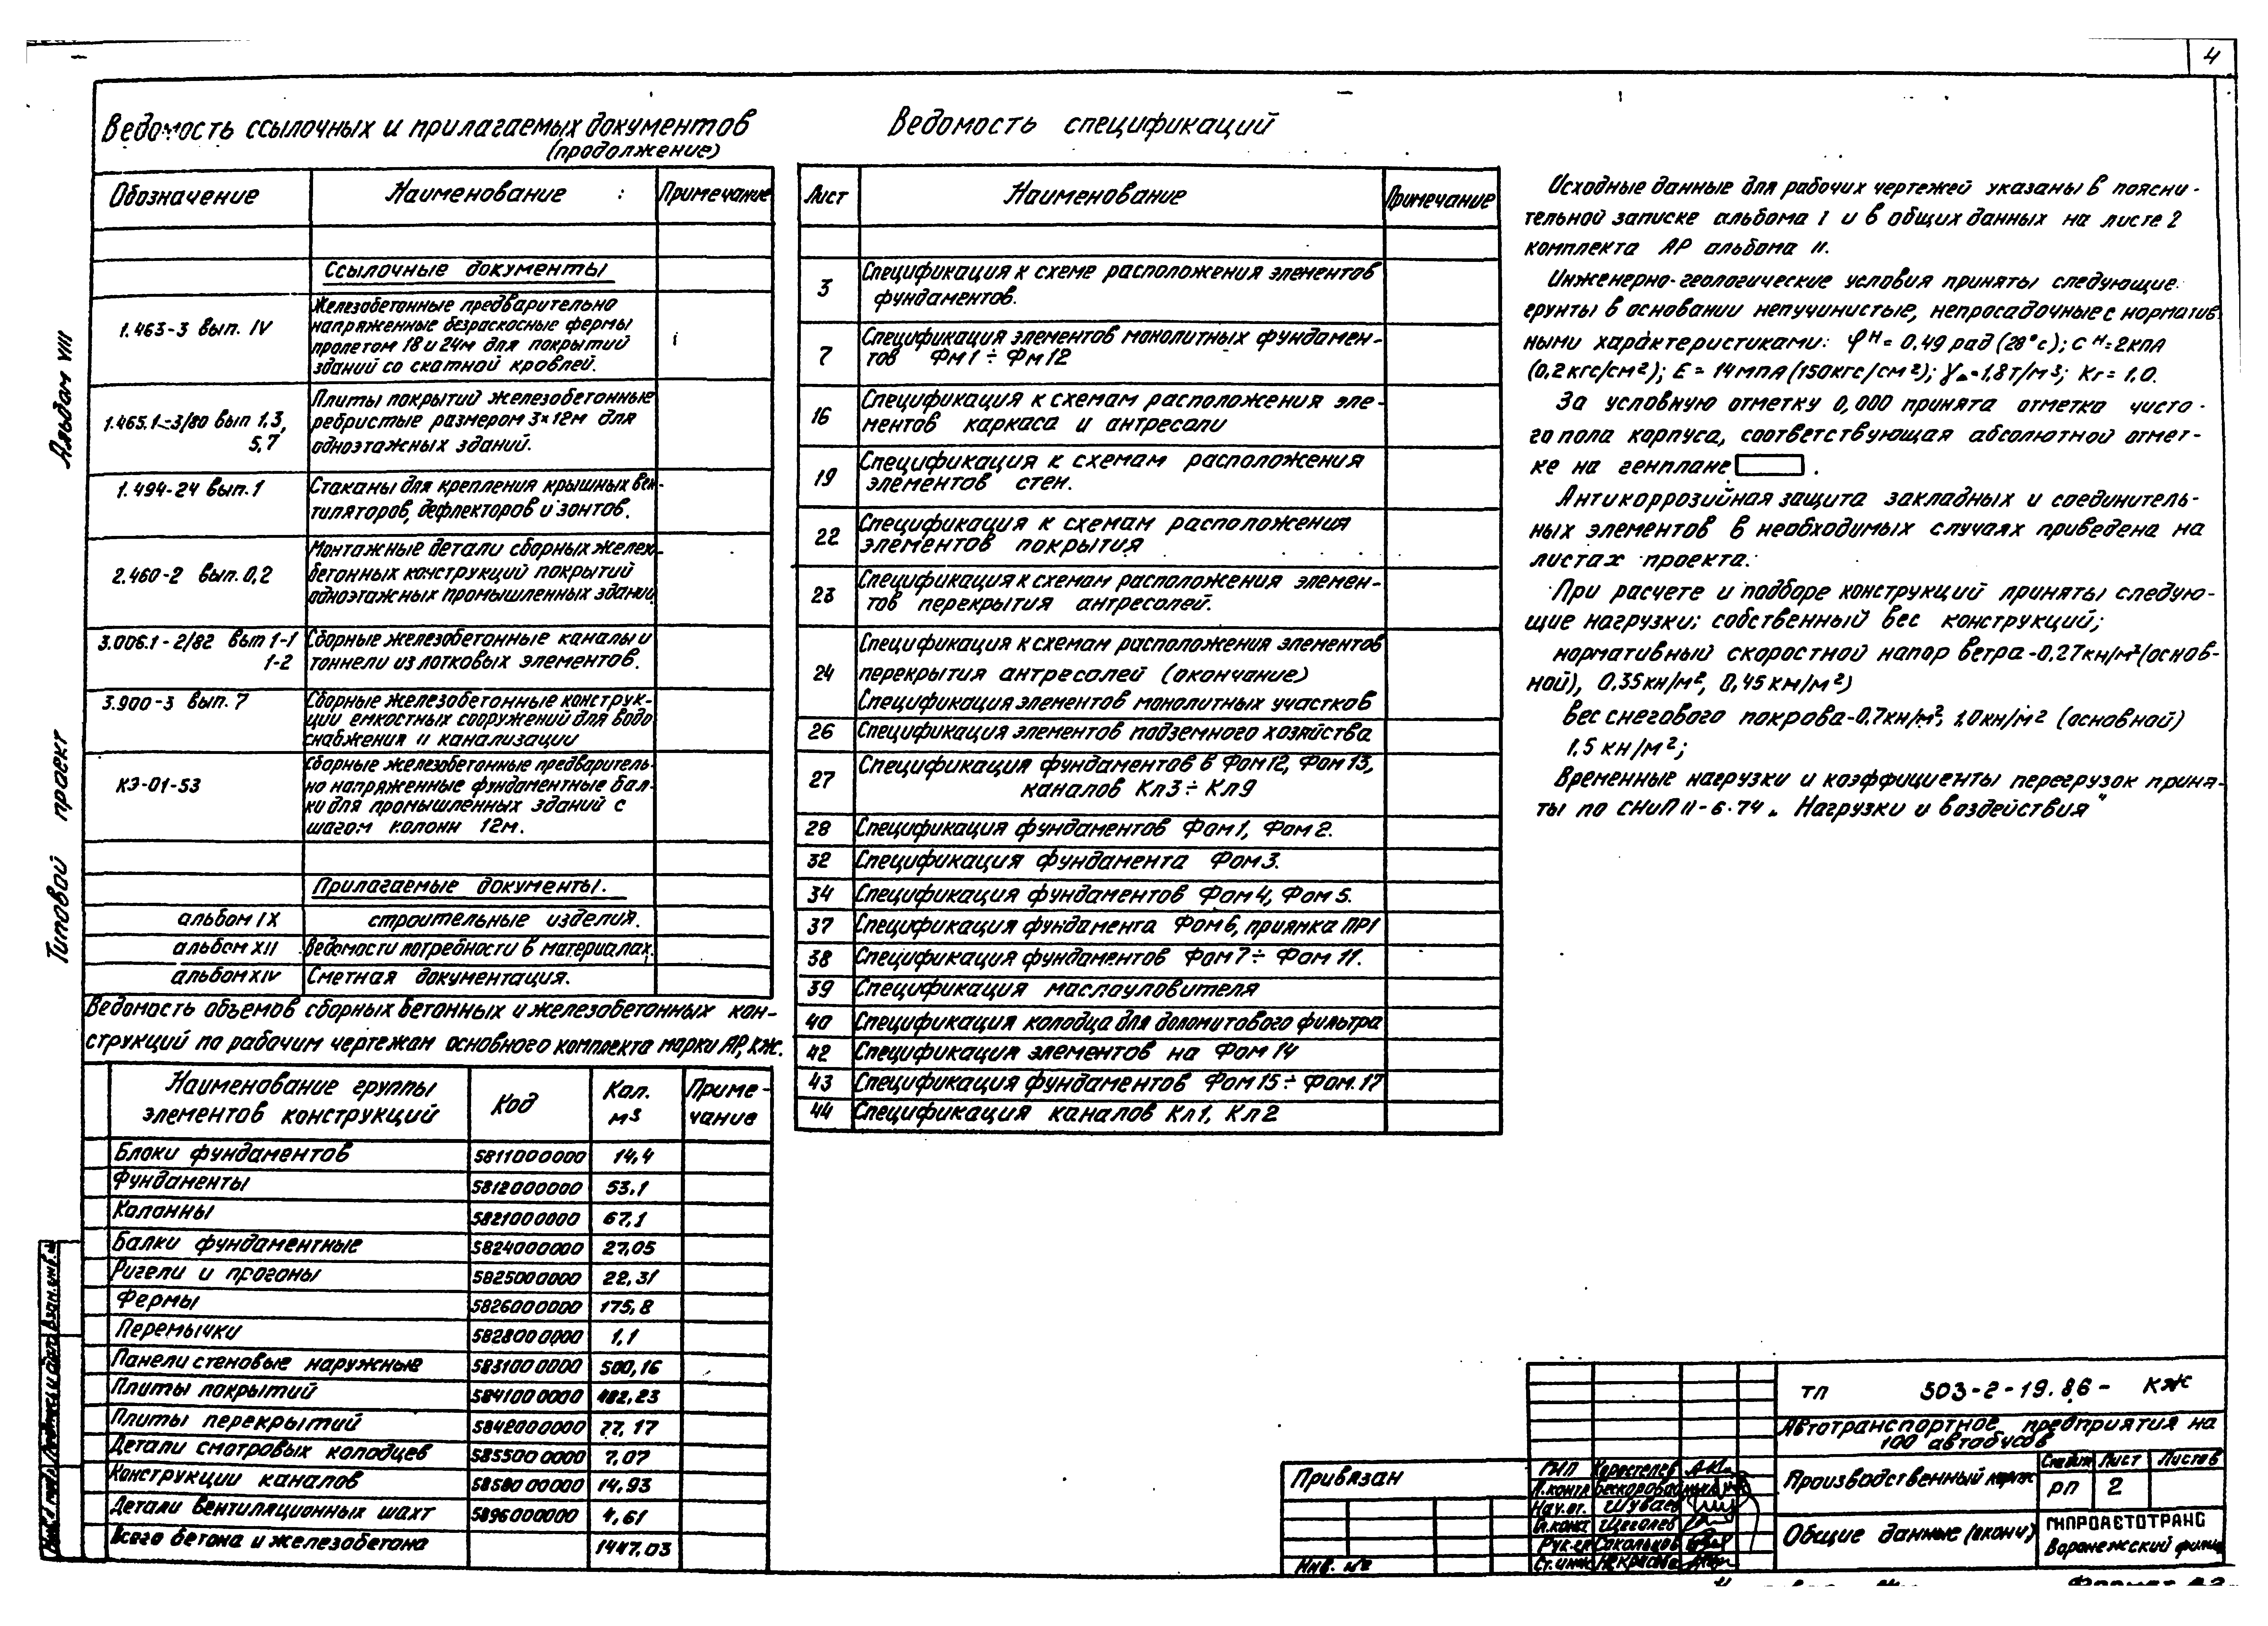 4
Альбом VIII
Типовой проект
Ведомость ссылочных и прилагаемых документов
(продолжение)
Обозначение Наименование Примечание
Ссылочные документы
1.463-3 вып. IV
Железобетонные предварительно
напряженные безраскосные фермы
пролетом 18 и 24м для покрытий
зданий со скатной кровлей.
1.465.1-3/80 вып 1.3,
5,7
Плиты покрытий железобетонные
ребристые размером 3×12м для
одноэтажных зданий.
1.494-24 вып.1
Стаканы для крепления крышных вен-
тиляторов, дефлекторов и зонтов.
2.460-2 вып.0,2
Монтажные детали сборных желез-
бетонных конструкций покрытий
одноэтажных промышленных зданий
3.006.1-2/82 вып 1-1
1-2
Сборные железобетонные каналы и
тоннели из лотковых элементов.
3.900-3 вып. 7
Сборные железобетонные конструк-
ции емкостных сооружений для водо
снабжения и канализации
КЭ-01-53
Сборные железобетонные предваритель-
но напряженные фундаментные бал-
ки для промышленных зданий с
шагом колонн 12м.
Прилагаемые документы.
альбом IX строительные изделия.
альбом XII Ведомости потребности в материалах.
альбом XIV Сметная документация.
Ведомость объемов сборных бетонных и железобетонных кон-
струкций по рабочим чертежам основного комплекта марки АР, КЖ.
Наименование группы
элементов конструкций
Код
Кол.
м3
Приме-
чание
Блоки фундаментов 5811000000 14,4
Фундаменты 5812000000 53,1
Колонны 5821000000 67,1
Балки фундаментные 5824000000 27,05
Ригели и прогоны 5825000000 22,31
Фермы 5826000000 175,8
Перемычки 5828000000 1,1
Панели стеновые наружные 5831000000 500,16
Плиты покрытий 5841000000 482,23
Плиты перекрытий 5842000000 77,17
Детали смотровых колодцев 5855000000 7,07
Конструкции каналов 5858000000 14,93
Детали вентиляционных шахт 5896000000 4,61
Всего бетона и железобетона 1447,03
Ведомость спецификаций
Лист Наименование Примечание
3 Спецификация к схеме расположения элементов
фундаментов.
7 Спецификация элементов монолитных фундамен-
тов Фм1÷Фм12
16 Спецификация к схемам расположения эле-
ментов каркаса и антресоли
19 Спецификация к схемам расположения
элементов стен.
22 Спецификация к схемам расположения
элементов покрытия
23 Спецификация к схемам расположения элемен-
тов перекрытия антресолей.
24 Спецификация к схемам расположения элементов
перекрытия антресолей (окончание)
Спецификация элементов монолитных участков
26 Спецификация элементов подземного хозяйства
27 Спецификация фундаментов в Фом12, Фом13,
каналов Кл3÷Кл9
28 Спецификация фундаментов Фом1, Фом2.
32 Спецификация фундамента Фом3.
34 Спецификация фундаментов Фом4, Фом5.
37 Спецификация фундамента Фом6, приямка ПР1
38 Спецификация фундаментов Фом7÷Фом11.
39 Спецификация маслоуловителя
40 Спецификация колодца для доломитового фильтра
42 Спецификация элементов на Фом14
43 Спецификация фундаментов Фом15÷Фом.17
44 Спецификация каналов Кл1, Кл2
Исходные данные для рабочих чертежей указаны в поясни-
тельной записке альбома 1 и в общих данных на листе 2
комплекта АР альбома II.
Инженерно-геологические условия приняты следующие:
грунты в основании непучинистые, непросадочные с норматив-
ными характеристиками: φн=0,49 рад(28°с); сн=2кПа
(0,2кгс/см²); Е=14мпа(150кгс/см²); γ=1,8т/м³; Кг=1,0.
За условную отметку 0,000 принята отметка чисто-
го пола корпуса, соответствующая абсолютной отмет-
ке на генплане .
Антикоррозийная защита закладных и соединитель-
ных элементов в необходимых случаях приведена на
листах проекта.
При расчете и подборе конструкций приняты следую-
щие нагрузки; собственный вес конструкций;
нормативный скоростной напор ветра-0,27кн/м²(основ-
ной), 0,35кн/м², 0,45км/м²)
вес снегового покрова-0,7кн/м², 1,0кн/м² (основной)
1,5 кн/м²;
Временные нагрузки и коэффициенты перегрузок приня-
ты по СНиП II-6-74 „Нагрузки и воздействия"
Привязан
Инв. №
ГИП Коростелев
Н.контр
Нач.от. Шуваев
Гл.конст Щеголев
Рук.гр Сокольцов
Ст.инж Некрасова
ТП 503-2-19.86- КЖ
Автотранспортное предприятия на
100 автобусов
Производственный корпус
Стадия Лист Листов
РП 2
Общие данные (оконч)
ГИПРОАВТОТРАНС
Воронежский филиал